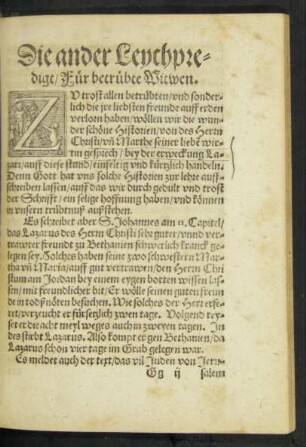 Die ander Leychpre-
digt/ Für betrübte Witwen.
ZU trost allen betrübten/ vnd sonder-
lich die jre liebsten freunde auff erden
verlorn haben/ wöllen wir die wun-
der schöne Historien/ von des Herrn
Christi/ vñ Marthe seiner lieben wir-
tin gesprech/ bey der erweckung La-
zari/ auff diese stund/ einfeltig vnd kürtzlich handeln.
Denn Gott hat vns solche Historien zur lehre auff-
schreiben lassen/ auff das wir durch gedult vnd trost
der Schrifft/ ein selige hoffnung haben/ vnd können
in vnsern trübnuß außstehen.
Es schreibet aber S. Johannes am 11. Capitel/
das Lazarus des Herrn Christi sehr guter/ vnnd ver-
trawter freundt zu Bethanien schwerlich kranck ge-
legen sey. Solches haben seine zwo schwestern Mar-
tha vñ Maria/ auff gut vertrawen/ den Herrn Chri
stum am Jordan bey einem eygen botten wissen las-
sen/ mit freundlicher bit/ Er wölle seinen guten freun
de in todßnöten besuchen. Wie solches der Herr erfe-
ret/ verzeucht er fürsetzlich zwen tage. Volgend rey-
set er die acht meyl weges auch in zweyen tagen. In
des stirbt Lazarus. Also kompt er gen Bethanien/ da
Lazarus schon vier tage im Grab gelegen war.
Es meldet auch der text/ das vil Juden von Jeru-
Gg ij salem